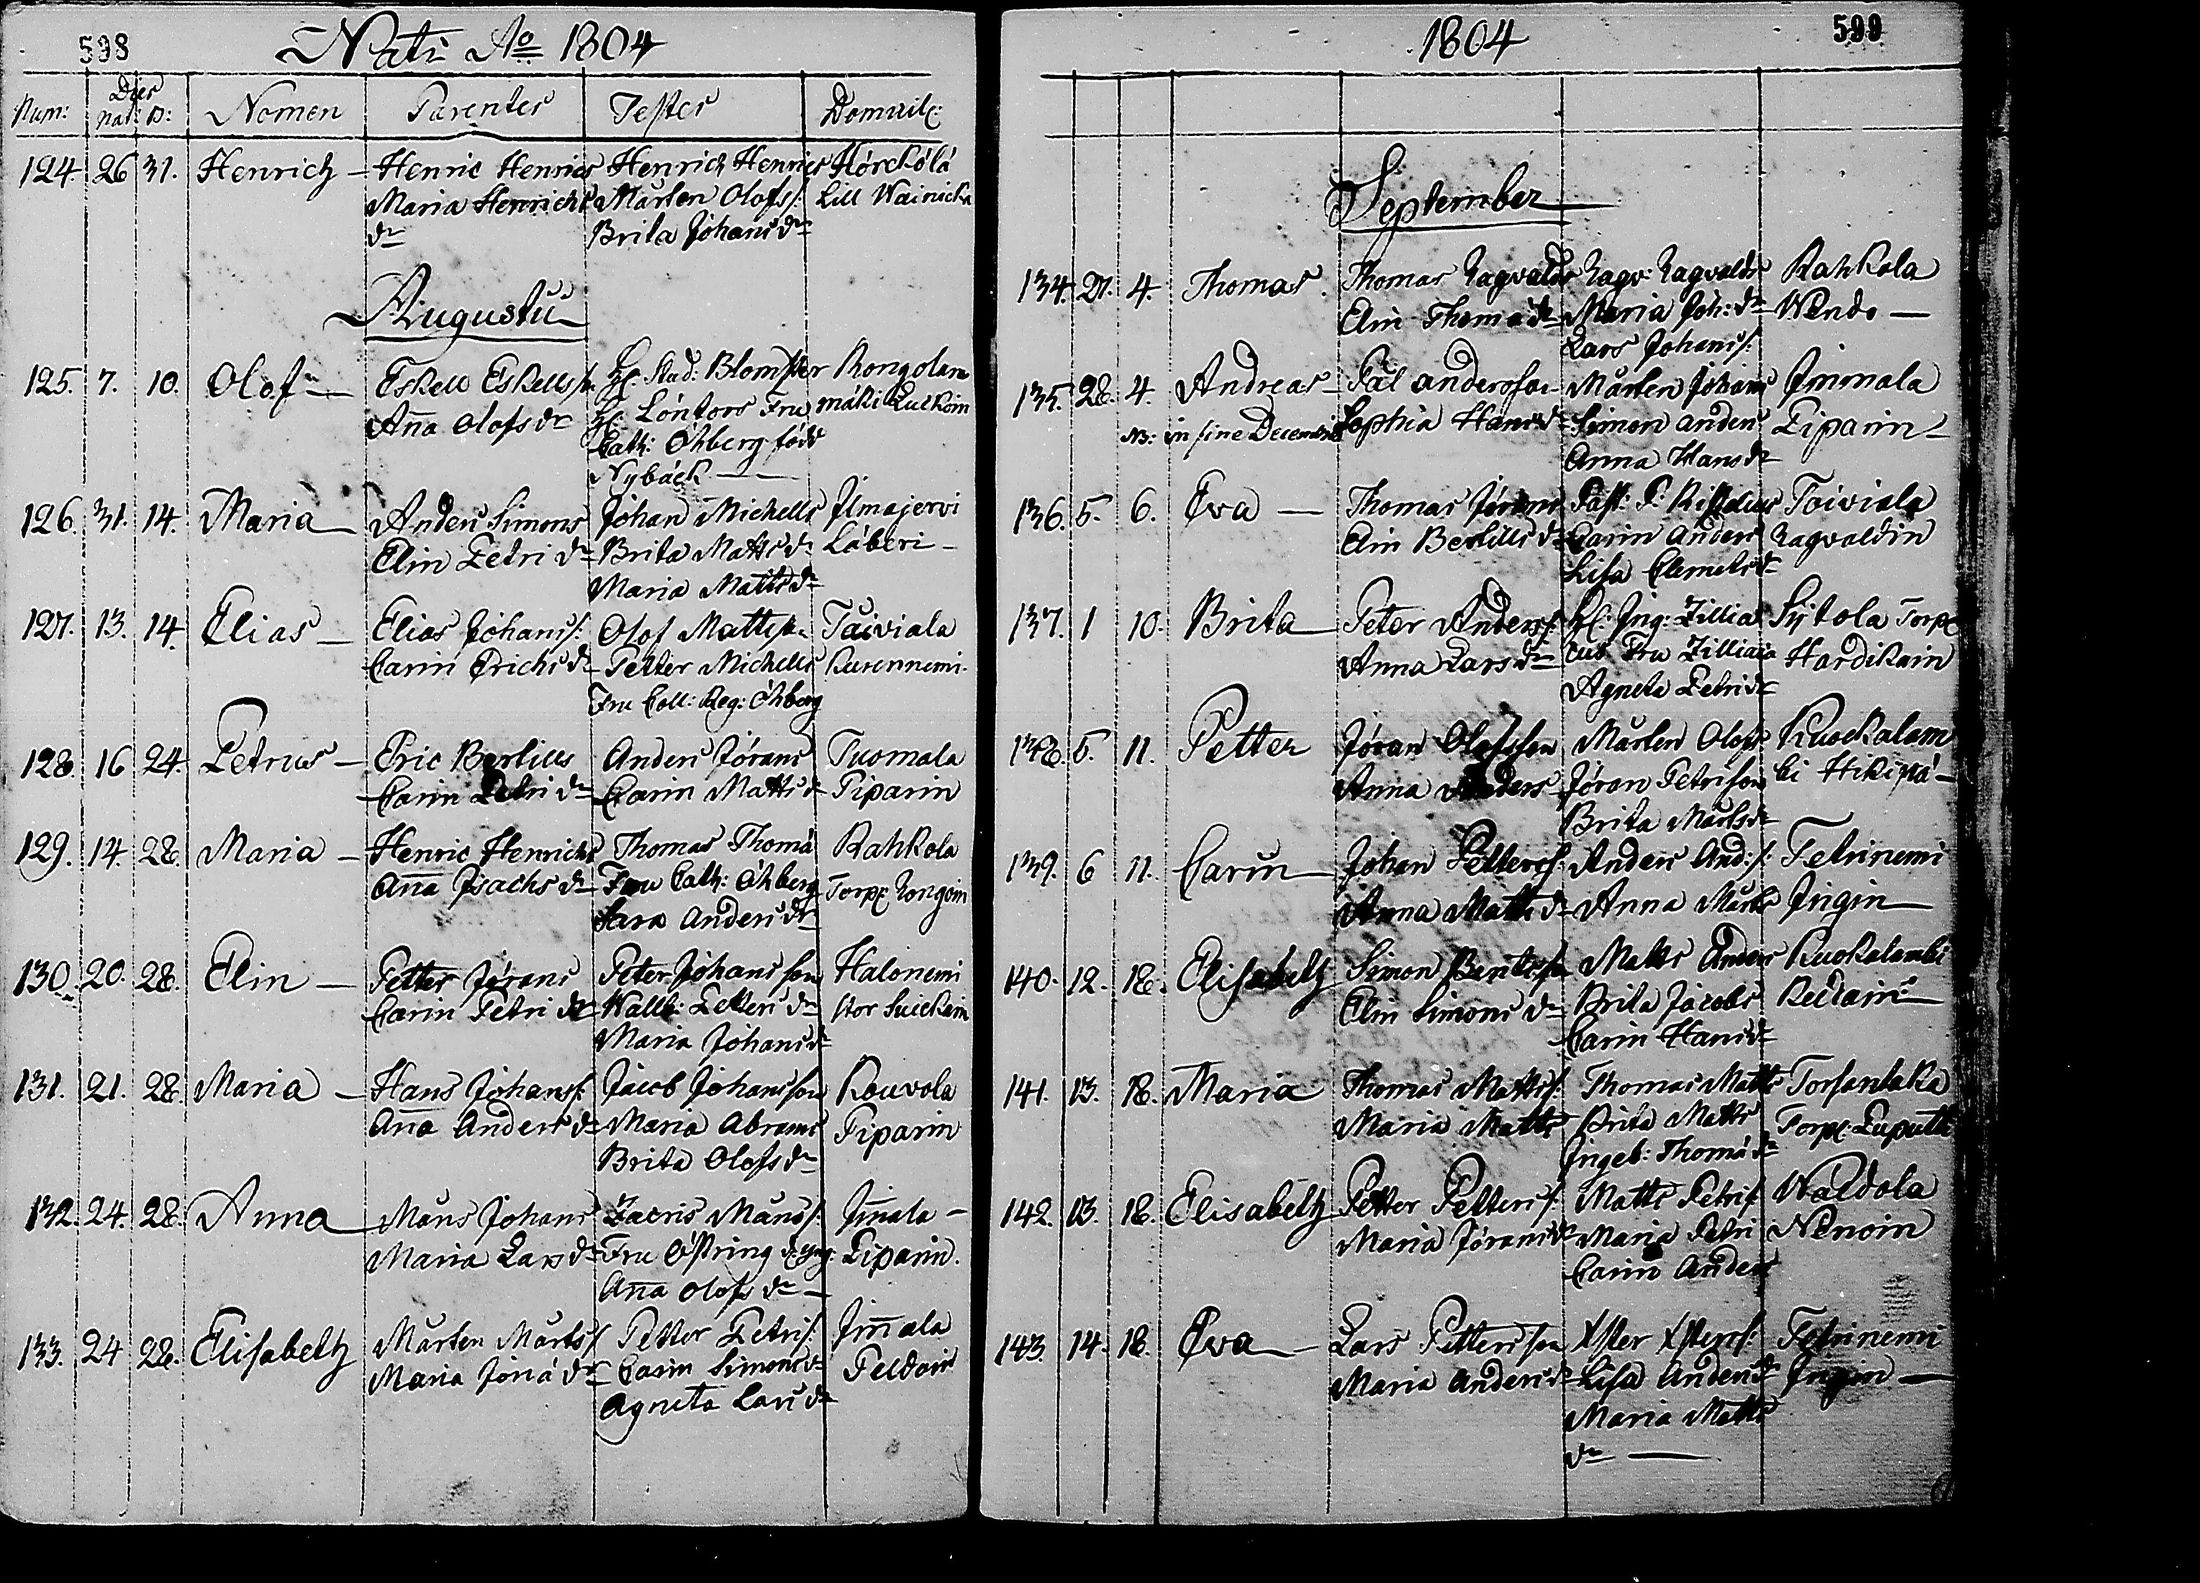 598
Nati Ao 1804
Num: Dies nat: B: Nomen Parentes Testes Domicil:
124 26 31. Henrich — Henric Henrics Henrich Henrics Hörckölä
Maria Henrichs Mårten Olofs/: Lill Wainicka
dr Brita Johans dr
Augusti
125. 7. 10. Olof — Eskell Eskells/n H: Stud: Blomster Kongolan
Anna Olofs dr H: Löntors Fru mäki
Cath: Öhberg född
Nybäck —
126. 31. 14. Maria — Anders Simons Johan Michells Ilmajervi
Elin Petri dr Brita Matts dr Läberi —
Maria Matts dr
127. 13. 14. Elias — Elias Johans/: Olof Matts/n Taiviala
Carin Erichs dr Petter Michells Kurennemi
Fru Coll: Reg: Öhberg
128 16 24. Petrus — Eric Bertills Anders Jörans Tuomala
Carin Petri dr Carin Matts dr Piparin
129. 14. 28. Maria — Henric Henrichs Thomas Thomä Rahkola
Anna Isachs dr Fru Cath: Öhberg Torp:
Sara Anders dr
130. 20. 28. Elin — Petter Jörans Peter Johansson Halonemi
Carin Petri dr Wallb: Petters dr stor
Maria Johans dr
131. 21. 28. Maria — Hans Johans/: Jacob Johansson Kouvola
Anna Anders dr Maria Abrams Piparin
Brita Olofs dr
132. 24. 28. Anna — Måns Johans Zacris Måns/: Immala —
Maria Lars dr Fru Östring Piparin.
Anna Olofs dr —
133. 24 28. Elisabeth Mårten Mårts/: Petter Petri/: Immala
Maria Jöra dr Carin Simons dr Peldoin
Agneta Lars dr
1804
599
September
134. 27. 4. Thomas. Thomas Ragvalds Ragv: Ragvalds Rahkola
Elin Thomä dr Maria Joh: dr —
Lars Johans/:
135. 28. 4. Andreas — Pål andersson Mårten Johans Immala
NB: in fine Decembris Sophia Hans dr Simon anders Piparin —
Anna Hans dr
136. 5. 6. Eva — Thomas Jörans Past: Taiviala
Elin Bertills dr Carin Anders Ragvaldin
Lisa Clemets dr
137. 1 10. Brita — Peter Anders/: H: Ing: Zilliac Sijtola Torp:
Anna Lars dr cus Fru Zilliaca Hardikain
Agneta Petri dr
138. 5. 11. Petter Jöran Olofsson Mårten Olofs Kuockalam
Anna Anders Jöran Petrison bi Hikipä —
Brita Mårts dr
139. 6 11. Carin — Johan Petters/: Anders And:/: Tetrinemi
Anna Matts dr Anna Mårts Ingin —
140. 12. 18. Elisabeth Simon Bertils/n Matts Anders Kuokalambi
Elin Simons dr Brita Jacobs
Carin Hans dr
141. 13. 18. Maria Thomas Matts/: Thomas Matts Torsantaka
Maria Matts Brita Matts Torp:
Ingeb: Thomä dr
142. 13. 18. Elisabeth Petter Petters/: Matts Petri/: Waldola
Maria Jörans dr Maria Petri
Carin Anders
143. 14. 18. Eva — Lars Pettersson Xster Xsters/: Tetrinemi
Maria Anders dr Lisa Anders dr Ingin —
Maria Matts
dr —